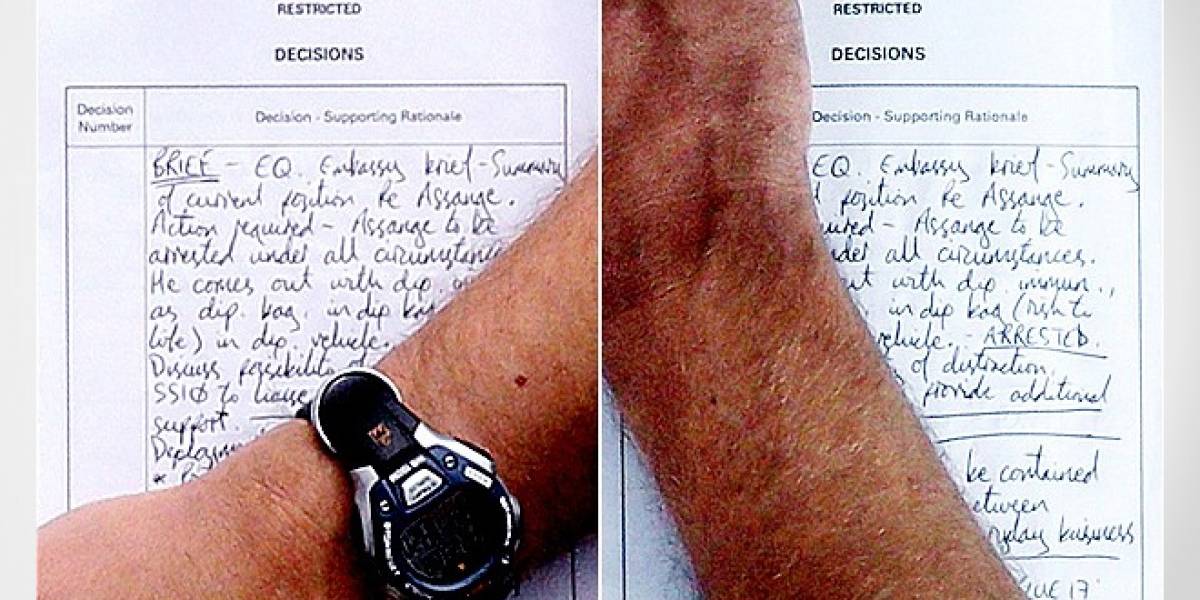 RESTRICTED
DECISIONS
Decision Number
Decision - Supporting Rationale
BRIEF - EQ. Embassy brief - Summary
of current position Re Assange.
Action required - Assange to be
arrested under all circumstances
He comes out with dip.
as dip. bag. in dip bag
life) in dip. vehicle.
Discuss possibility of
SS10 to liaise
support.
RESTRICTED
DECISIONS
Decision - Supporting Rationale
EQ. Embassy brief - Summary
position Re Assange.
Assange to be
all circumstances.
with dip immun.,
in dip bag (risk to
- ARRESTED.
of distraction,
provide additional
be contained
business